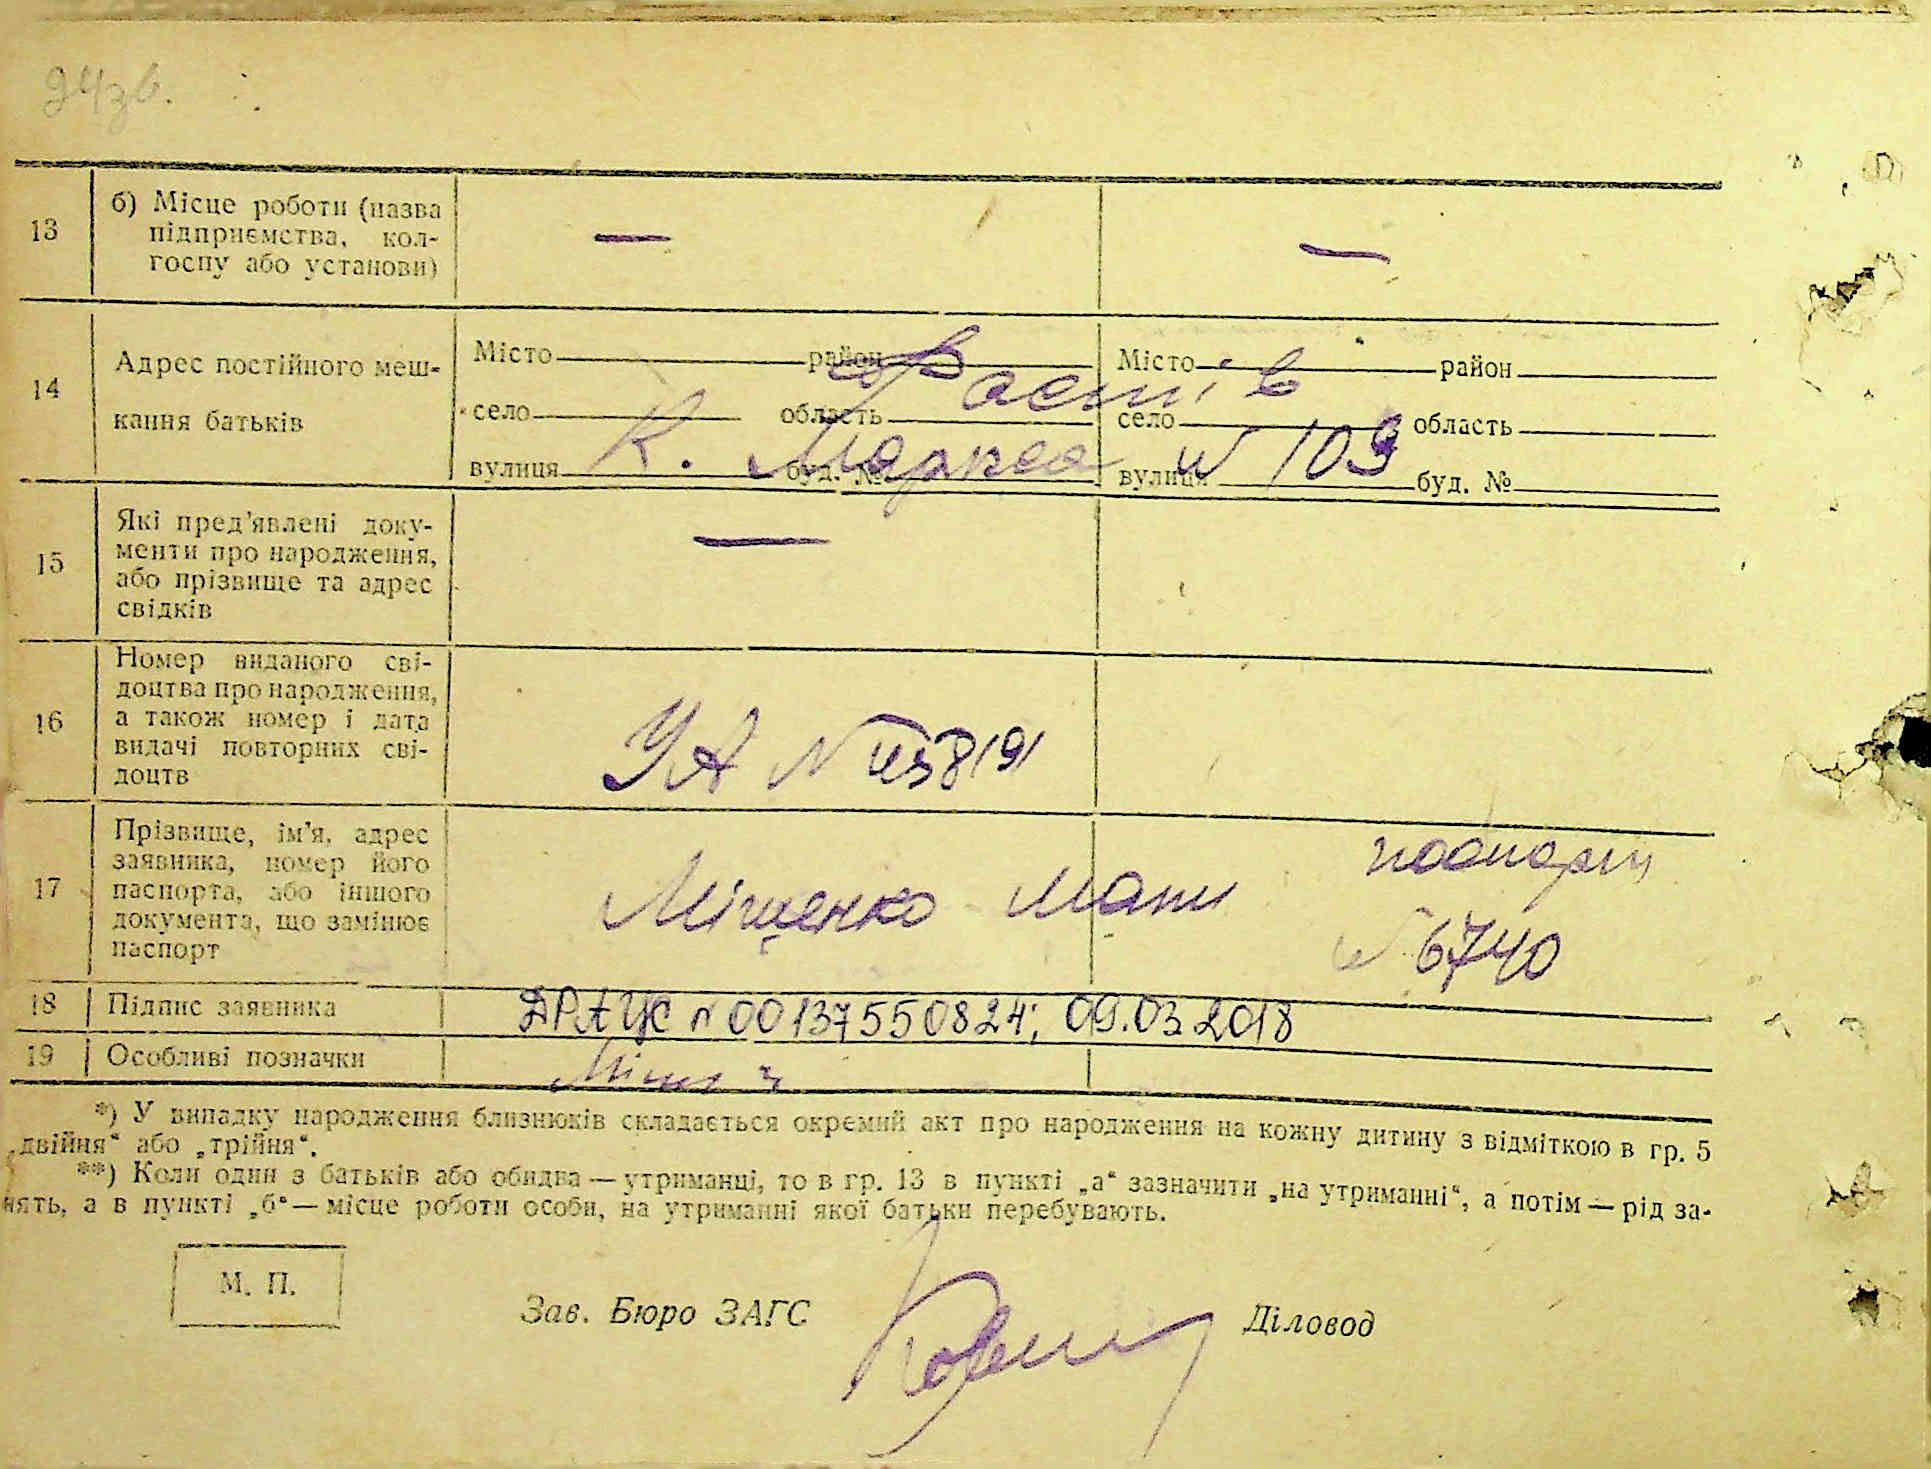 94зв.
13
б) Місце роботи (назва
підприємства, кол-
госпу або установи)
—
—
14
Адрес постійного меш-
кання батьків
Місто район
село область
вулиця буд. №
Місто район
село область
вулиця буд. №
Фастів
К. Маркса № 109
15
Які пред'явлені доку-
менти про народження,
або прізвище та адрес
свідків
—
16
Номер виданого сві-
доцтва про народження,
а також номер і дата
видачі повторних сві-
доцтв
УА №
17
Прізвище, ім'я, адрес
заявника, номер його
паспорта, або іншого
документа, що замінює
паспорт
Міщенко мати
паспорт
№ 6740
18
Підпис заявника
ДРАЦС № 00137550824; 09.03.2018
19
Особливі позначки
*) У випадку народження близнюків складається окремий акт про народження на кожну дитину з відміткою в гр. 5
„двійня“ або „трійня“.
**) Коли один з батьків або обидва — утриманці, то в гр. 13 в пункті „а“ зазначити „на утриманні“, а потім — рід за-
нять, а в пункті „б“ — місце роботи особи, на утриманні якої батьки перебувають.
М. П.
Зав. Бюро ЗАГС
Діловод